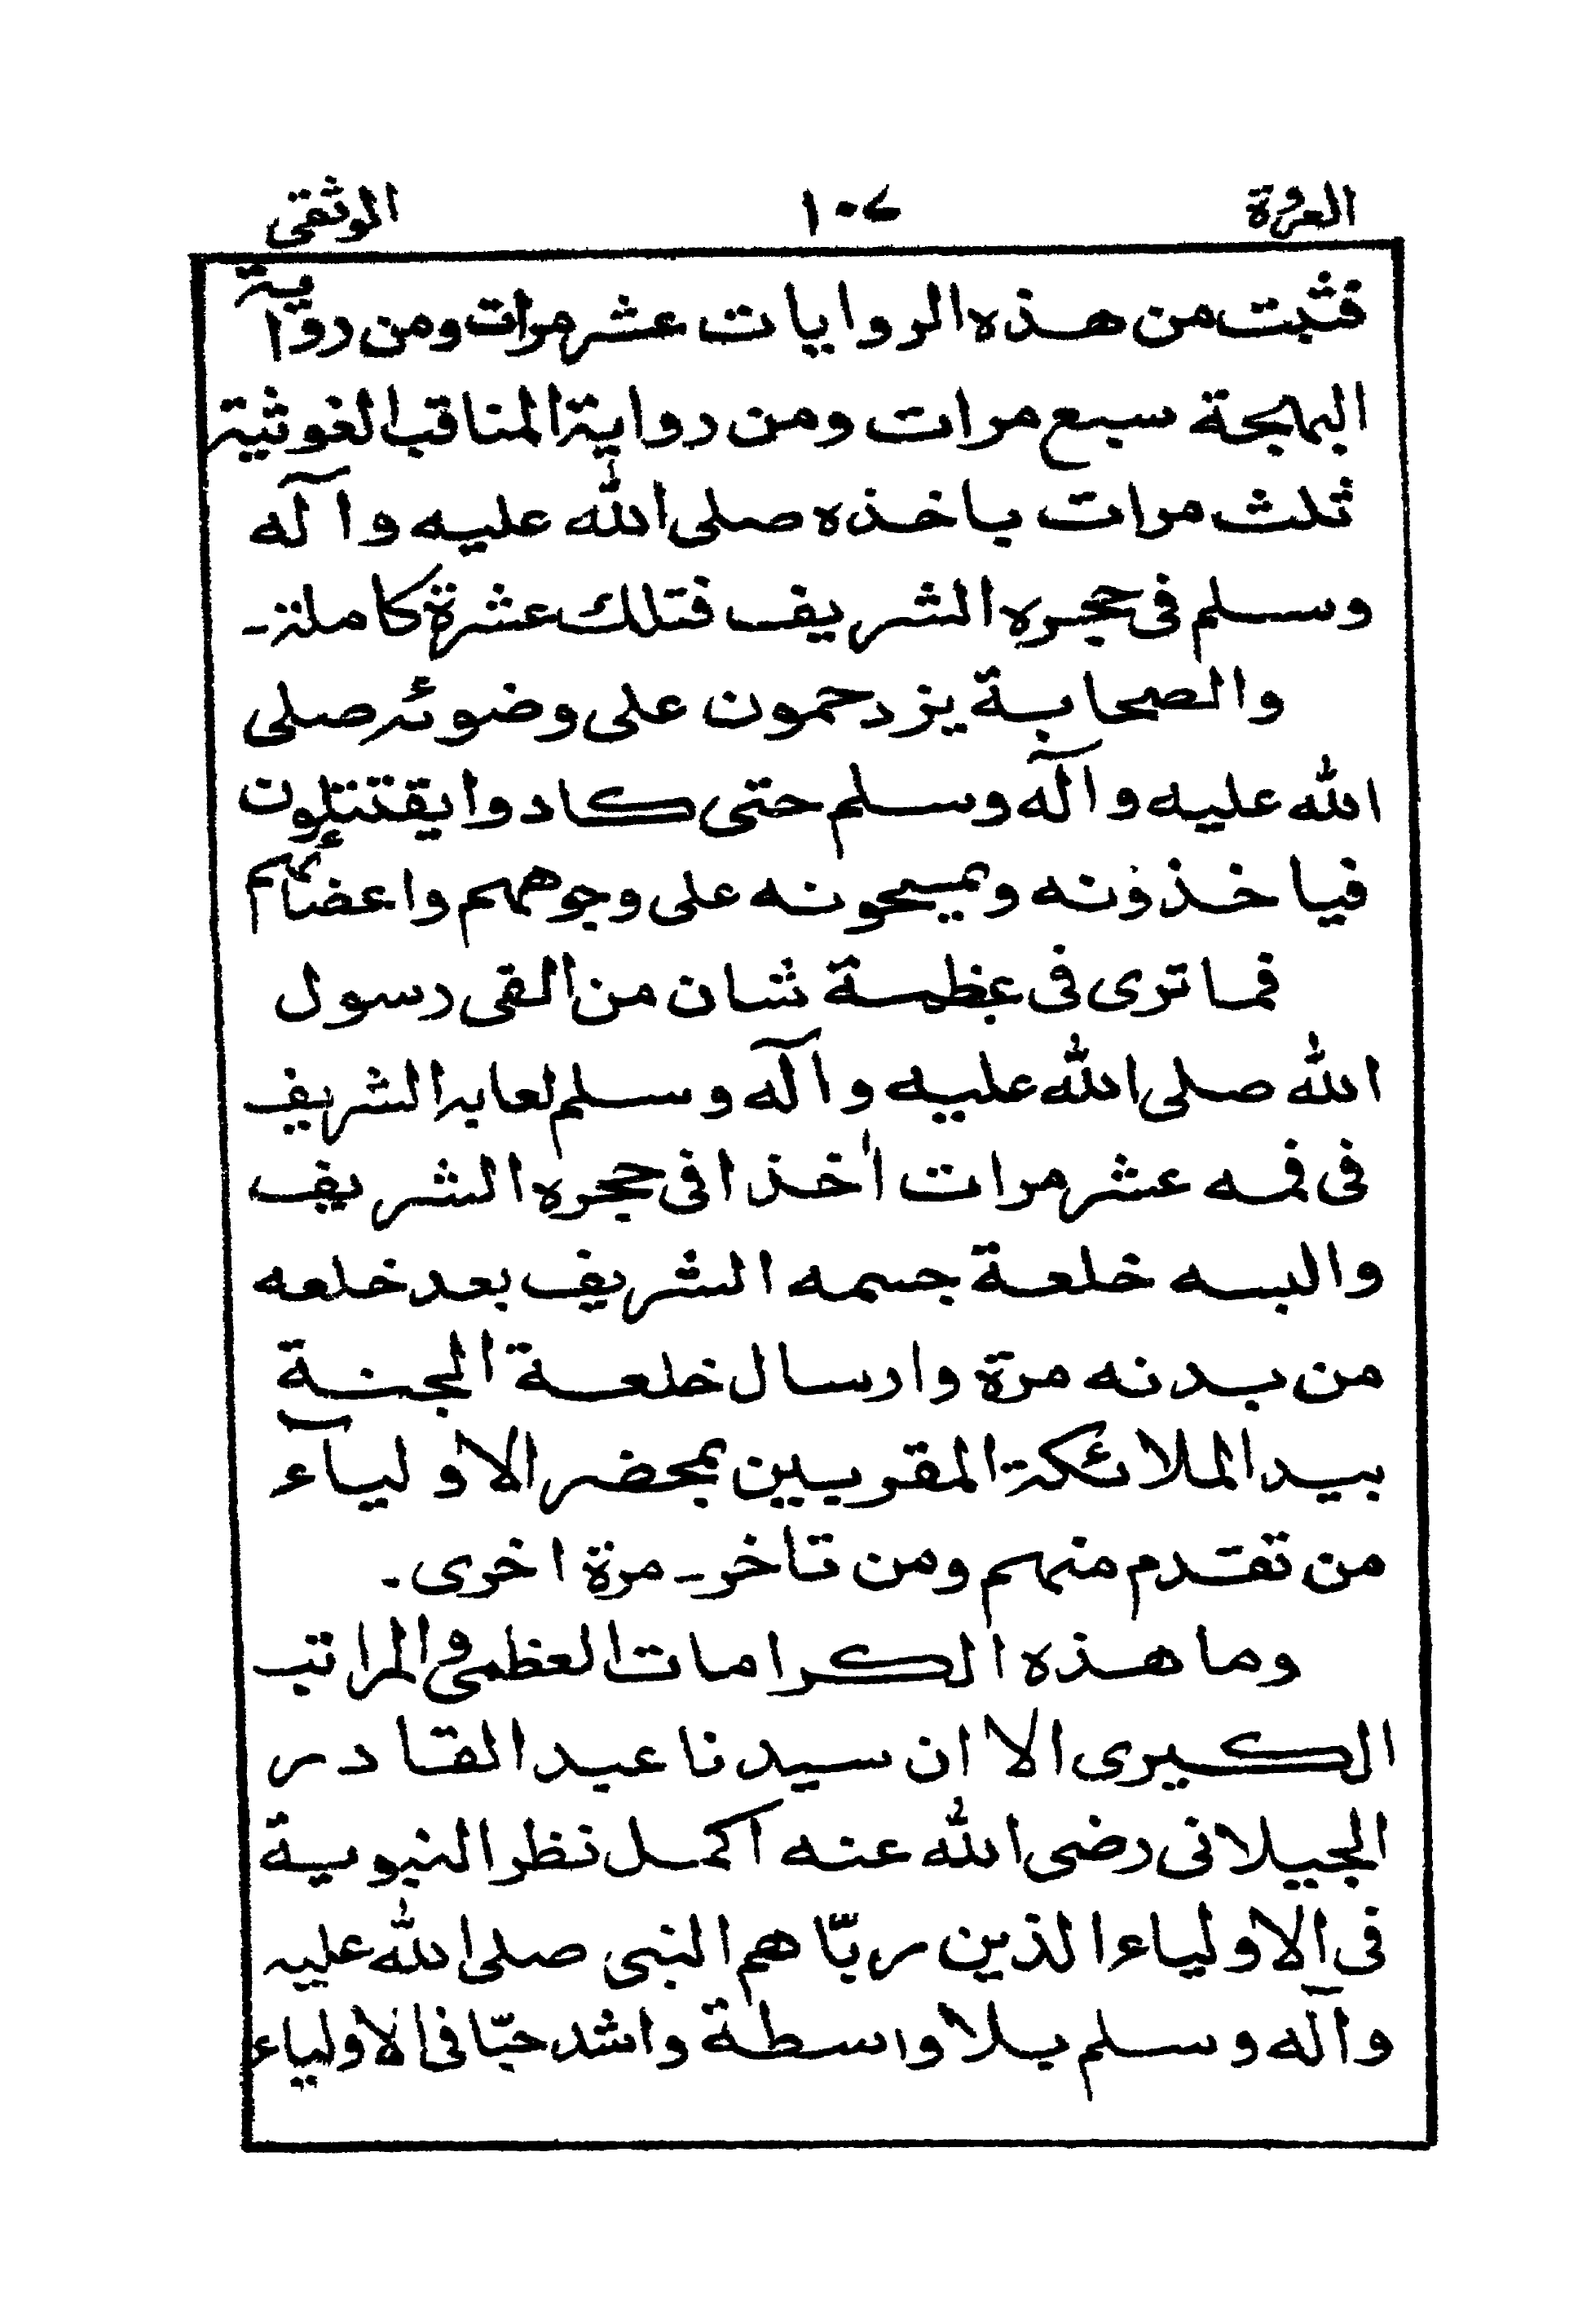 العروة ١٠٧ الوثقى
فثبت من هذه الروايات عشر مرات ومن رواية
البهجة سبع مرات ومن رواية المناقب الغوثية
ثلث مرات باخذه صلى الله عليه وآله
وسلم فى حجره الشريف فتلك عشرة كاملة۔
والصحابة يزدحمون على وضوئه صلى
الله عليه وآله وسلم حتى كادوا يقتتلون
فياخذونه ويمسحونه على وجوههم واعضائهم
فما ترى فى عظمة شان من القى رسول
الله صلى الله عليه وآله وسلم لعابه الشريف
فى فمه عشر مرات اخذا فى حجره الشريف
والبسه خلعة جسمه الشريف بعد خلعه
من بدنه مرة وارسال خلعة الجنة
بيد الملائكة المقربين بمحضر الاولياء
من تقدم منهم ومن تاخر۔ مرة اخرى۔
وما هذه الكرامات العظمى والمراتب
الكبرى الا ان سيدنا عبد القادر
الجيلانى رضى الله عنه اكمل نظر النبوية
فى الاولياء الذين ربّاهم النبى صلى الله عليه
وآله وسلم بلا واسطة واشد حبّا فى الاولياء